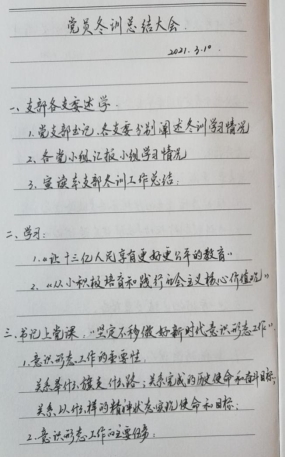 党员冬训总结大会.
2021.3.10
一、支部各支委述学.
1、党支部书记、各支委分别阐述冬训学习情况
2、各党小组汇报小组学习情况
3、宣读本支部冬训工作总结;
二、学习:
1、“让十三亿人民享有更好更公平的教育”
2、“从小积极培育和践行社会主义核心价值观”
三、书记上党课,“坚定不移做好新时代意识形态工作”
1、意识形态工作的重要性.
关系举什么旗走什么路;关系完成的历史使命和奋斗目标,
关系以什么样的精神状态实现使命和目标;
2、意识形态工作的主要任务;